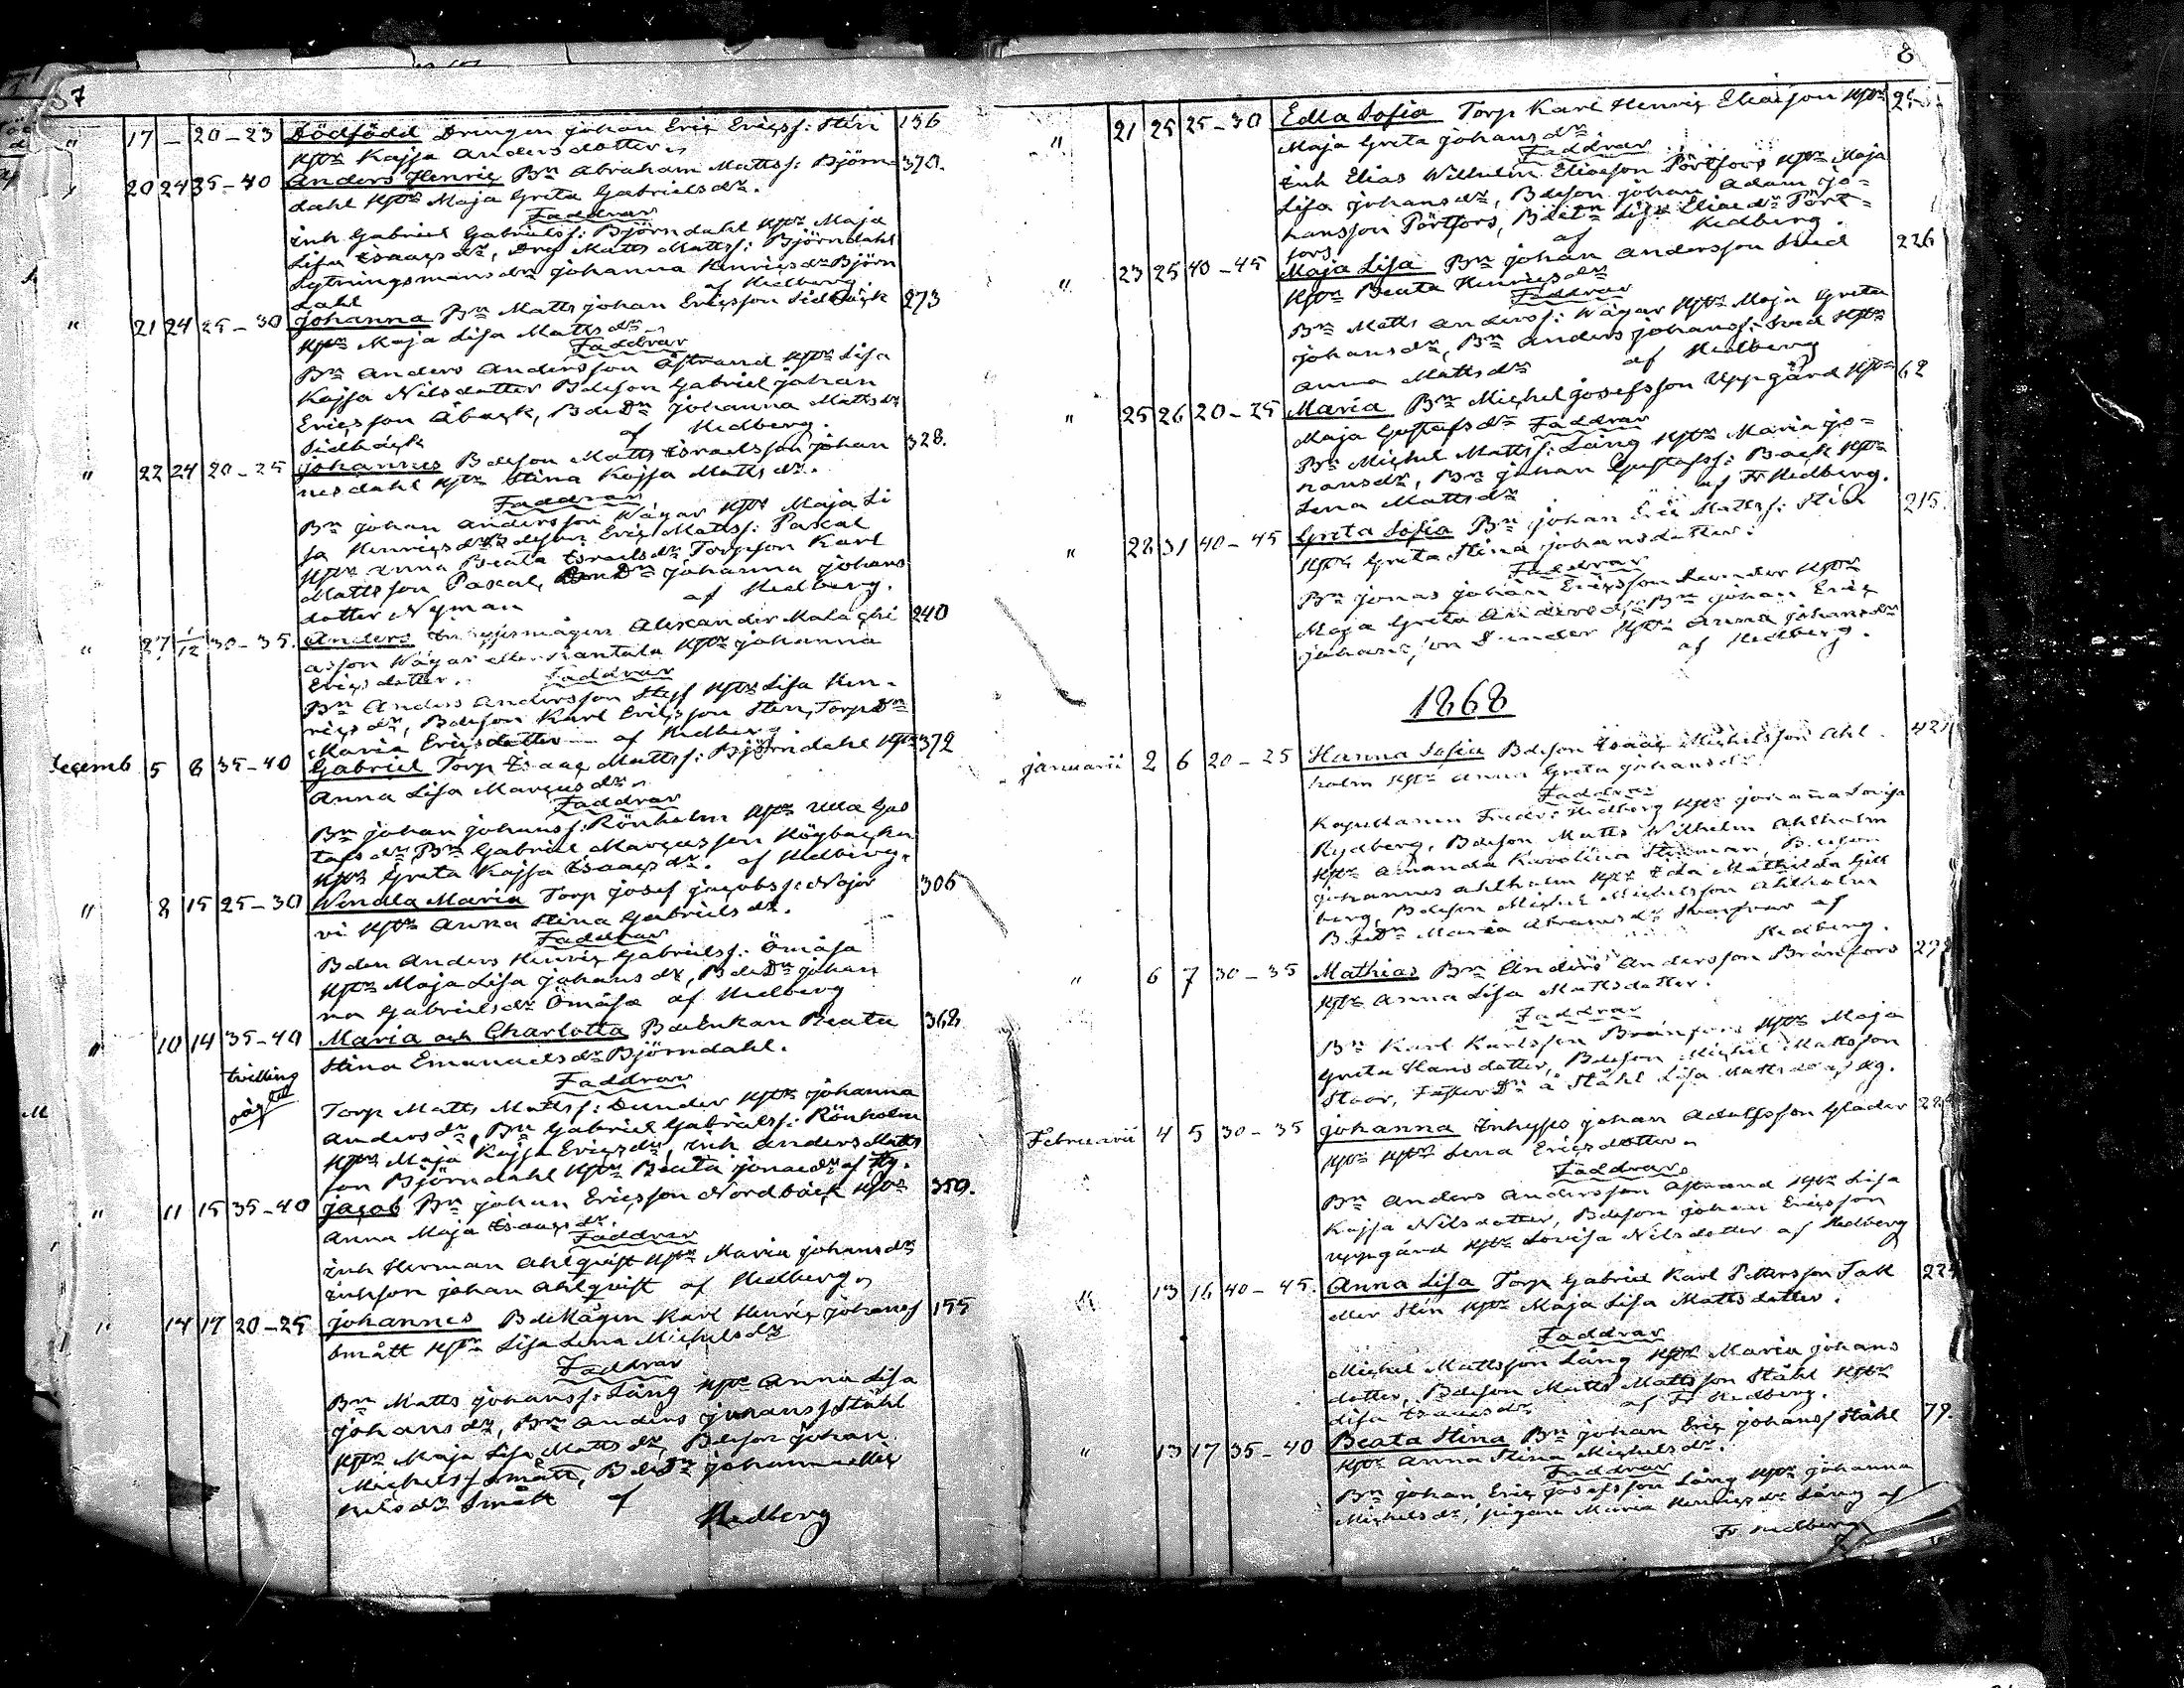 57
" 17 — 20–23 Dödfödd Drengen Johan Eric Ericss: Sten 136
Hstr Kajsa Andersdotter
" 20 24 35–40 Anders Henric Bn Abraham Mattss: Björn- 370.
dahl Hstr Maja Greta Gabrielsdr.
Faddrar
Inh Gabriel Gabrielss: Björndahl Hstr Maja
Lisa Isaacsdr, Drg Matts Mattss: Björndahl
Sytningsmansdr Johanna Henricsdr Björn
dahl af Hedberg.
" 21 24 25–30 Johanna Bn Matts Johan Ericsson Sidbäck 273
Hstr Maja Lisa Mattsdr
Faddrar
Bn Anders Andersson Åstrand Hstr Lisa
Kajsa Nilsdotter Bdeson Gabriel Johan
Ericsson Åback, BdeDn Johanna Mattsdr
Sidbäck af Hedberg.
" 22 24 20–25 Johannes Bdeson Matts Israelsson Johan 328.
nesdahl Hstr Stina Kajsa Mattsdr.
Faddrar
Bn Johan Andersson Wägar Hstr Maja Li
sa Henricsdr Bdeson Eric Mattss: Paxal
Hstr Anna Beata Israelsdr Torpson Karl
Mattsson Paxal, Dn Johanna Johans
dotter Nyman af Hedberg.
" 27 1/12 30–35. Anders Inhysesmågen Alexander Malachi 240
asson Wägar eller Rantala Hstr Johanna
Ericsdotter. Faddrar
Bn Anders Andersson Hstr Lisa Hen-
ricsdr, Bdeson Karl Ericsson Sten, TorpDn
Maria Ericsdotter — af Hedberg.
Decemb 5 8 35–40 Gabriel Torp Isaac Mattss: Björndahl Hstr 372
Anna Lisa Marcusdr
Faddrar
Bn Johan Johanss: Rönholm Hstr Ulla Gus
tafsdr Bn Gabriel Marcusson Högbacka
Hstr Greta Kajsa Isaacsdr. af Hedberg.
" 8 15 25–30 Wendla Maria Torp Josef Jacobss: Najär 306
vi Hstr Anna Stina Gabrielsdr.
Faddrar
Bden Anders Henric Gabrielss: Ömåsa
Hstr Maja Lisa Johansdr, BdeDn Johan
na Gabrielsdr Ömåsa af Hedberg
" 10 14 35–40 Maria och Charlotta BdeEnkan Beata 368.
tvilling Stina Emanuelsdr Björndahl.
oägta
Faddrar
Torp Matts Mattss: Dunder Hstr Johanna
Andersdr, Bn Gabriel Gabrielss: Rönholm
Hstr Maja Kajsa Ericsdr, Inh Anders Matts
son Björndahl Hstr Beata Jonaedr af Hg.
" 11 15 35–40 Jacob Bn Johan Ericsson Nordbäck Hstr 350.
Anna Maja Isaacsdr.
Faddrar
Inh Herman Ahlqvist Hstr Maria Johansdr
Inhson Johan Ahlqvist af Hedberg
" 14 17 20–25 Johannes BdeMågen Karl Henric Johanss 155
Smått Hstr Lisa Lena Michelsdr
Faddrar
Bn Matts Johanss: Lång Hstr Anna Lisa
Johansdr, Bn Anders Johanss Ståhl
Hstr Maja Lisa Mattsdr, Bdeson Johan
Michelss Smått, BdeDn Johanna Mic
helsdr Smått af
Hedberg
8
" 21 25 25–30 Edla Sofia Torp Karl Henric Eliaeson Hstr
Maja Greta Johansdr
Faddrar
Inh Elias Wilhelm Eliaeson Pörtfors Hstr Maja
Lisa Johansdr, Bdeson Johan Adam Jo-
hansson Pörtfors, BdeDn Lisa Eliaedr Pört-
fors af Hedberg.
" 23 25 40–45 Maja Lisa Bn Johan Andersson Sved 226
Hstr Beata Henricsdr
Faddrar
Bn Matts Anderss: Wägar Hstr Maja Greta
Johansdr, Bn Anders Johanss: Sved Hstr
Anna Mattsdr af Hedberg
" 25 26 20–25 Maria Bn Michel Josefsson Uppgård Hstr 62
Maja Gustafsdr Faddrar
Bn Michel Mattss: Lång Hstr Maria Jo-
hansdr, Bn Johan Gustafss: Back Hstr
Lena Mattsdr af Fr Hedberg.
" 28 31 40–45 Greta Sofia Bn Johan Eric Mattss: Sten 215.
Hstr Greta Stina Johansdotter.
Faddrar
Bn Jonas Johan Ericsson Dunder Hstr
Maja Greta Andersdr Bn Johan Eric
Johansson Dunder Hstr Anna Johansdr
af Hedberg.
1868
Januarii 2 6 20–25 Hanna Sofia Bdeson Isaac Michelsson Ahl-
holm Hstr Anna Greta Johansdr
Faddrar
Kapellanen Fredr: Hedberg Hstr Johanna Lovisa
Rydberg, Bdeson Matts Wilhelm Ahlholm
Hstr Amanda Karolina, Bdeson
Johannes Ahlholm Hstr Ida Mathilda Gill
berg, Bdeson Michel Michelsson Ahlholm
BdeDn Maria Abramsdr af
Hedberg.
" 6 7 30–35 Mathias Bn Anders Andersson Brånfors
Hstr Anna Lisa Mattsdotter.
Faddrar
Bn Karl Karlsson Brånfors Hstr Maja
Greta Hansdotter, Bdeson Michel Mattsson
Stoor, Dn å Ståhl Lisa Mattsdr af Hg.
Februarii 4 5 30–35 Johanna Inhyses Johan Adolfsson Glader
Hstr Hstr Lena Ericsdotter
Faddrar
Bn Anders Andersson Åstrand Hstr Lisa
Kajsa Nilsdotter, Bdeson Johan Ericsson
Uppgård Hstr Lovisa Nilsdotter af Hedberg
" 13 16 40–45. Anna Lisa Torp Gabriel Karl Pettersson Fall
eller Sten Hstr Maja Lisa Mattsdotter.
Faddrar
Michel Mattsson Lång Hstr Maria Johans
dotter, Bdeson Matts Mattsson Ståhl Hstr
Lisa Isaacsdr af Fr Hedberg.
" 13 17 35–40 Beata Stina Bn Johan Eric Johanss Ståhl 79.
Hstr Anna Stina Michelsdr.
Faddrar
Bn Johan Eric Josefsson Lång Hstr Johanna
Michelsdr, pigan Maria Henricsdr Lång af
Fr Hedberg